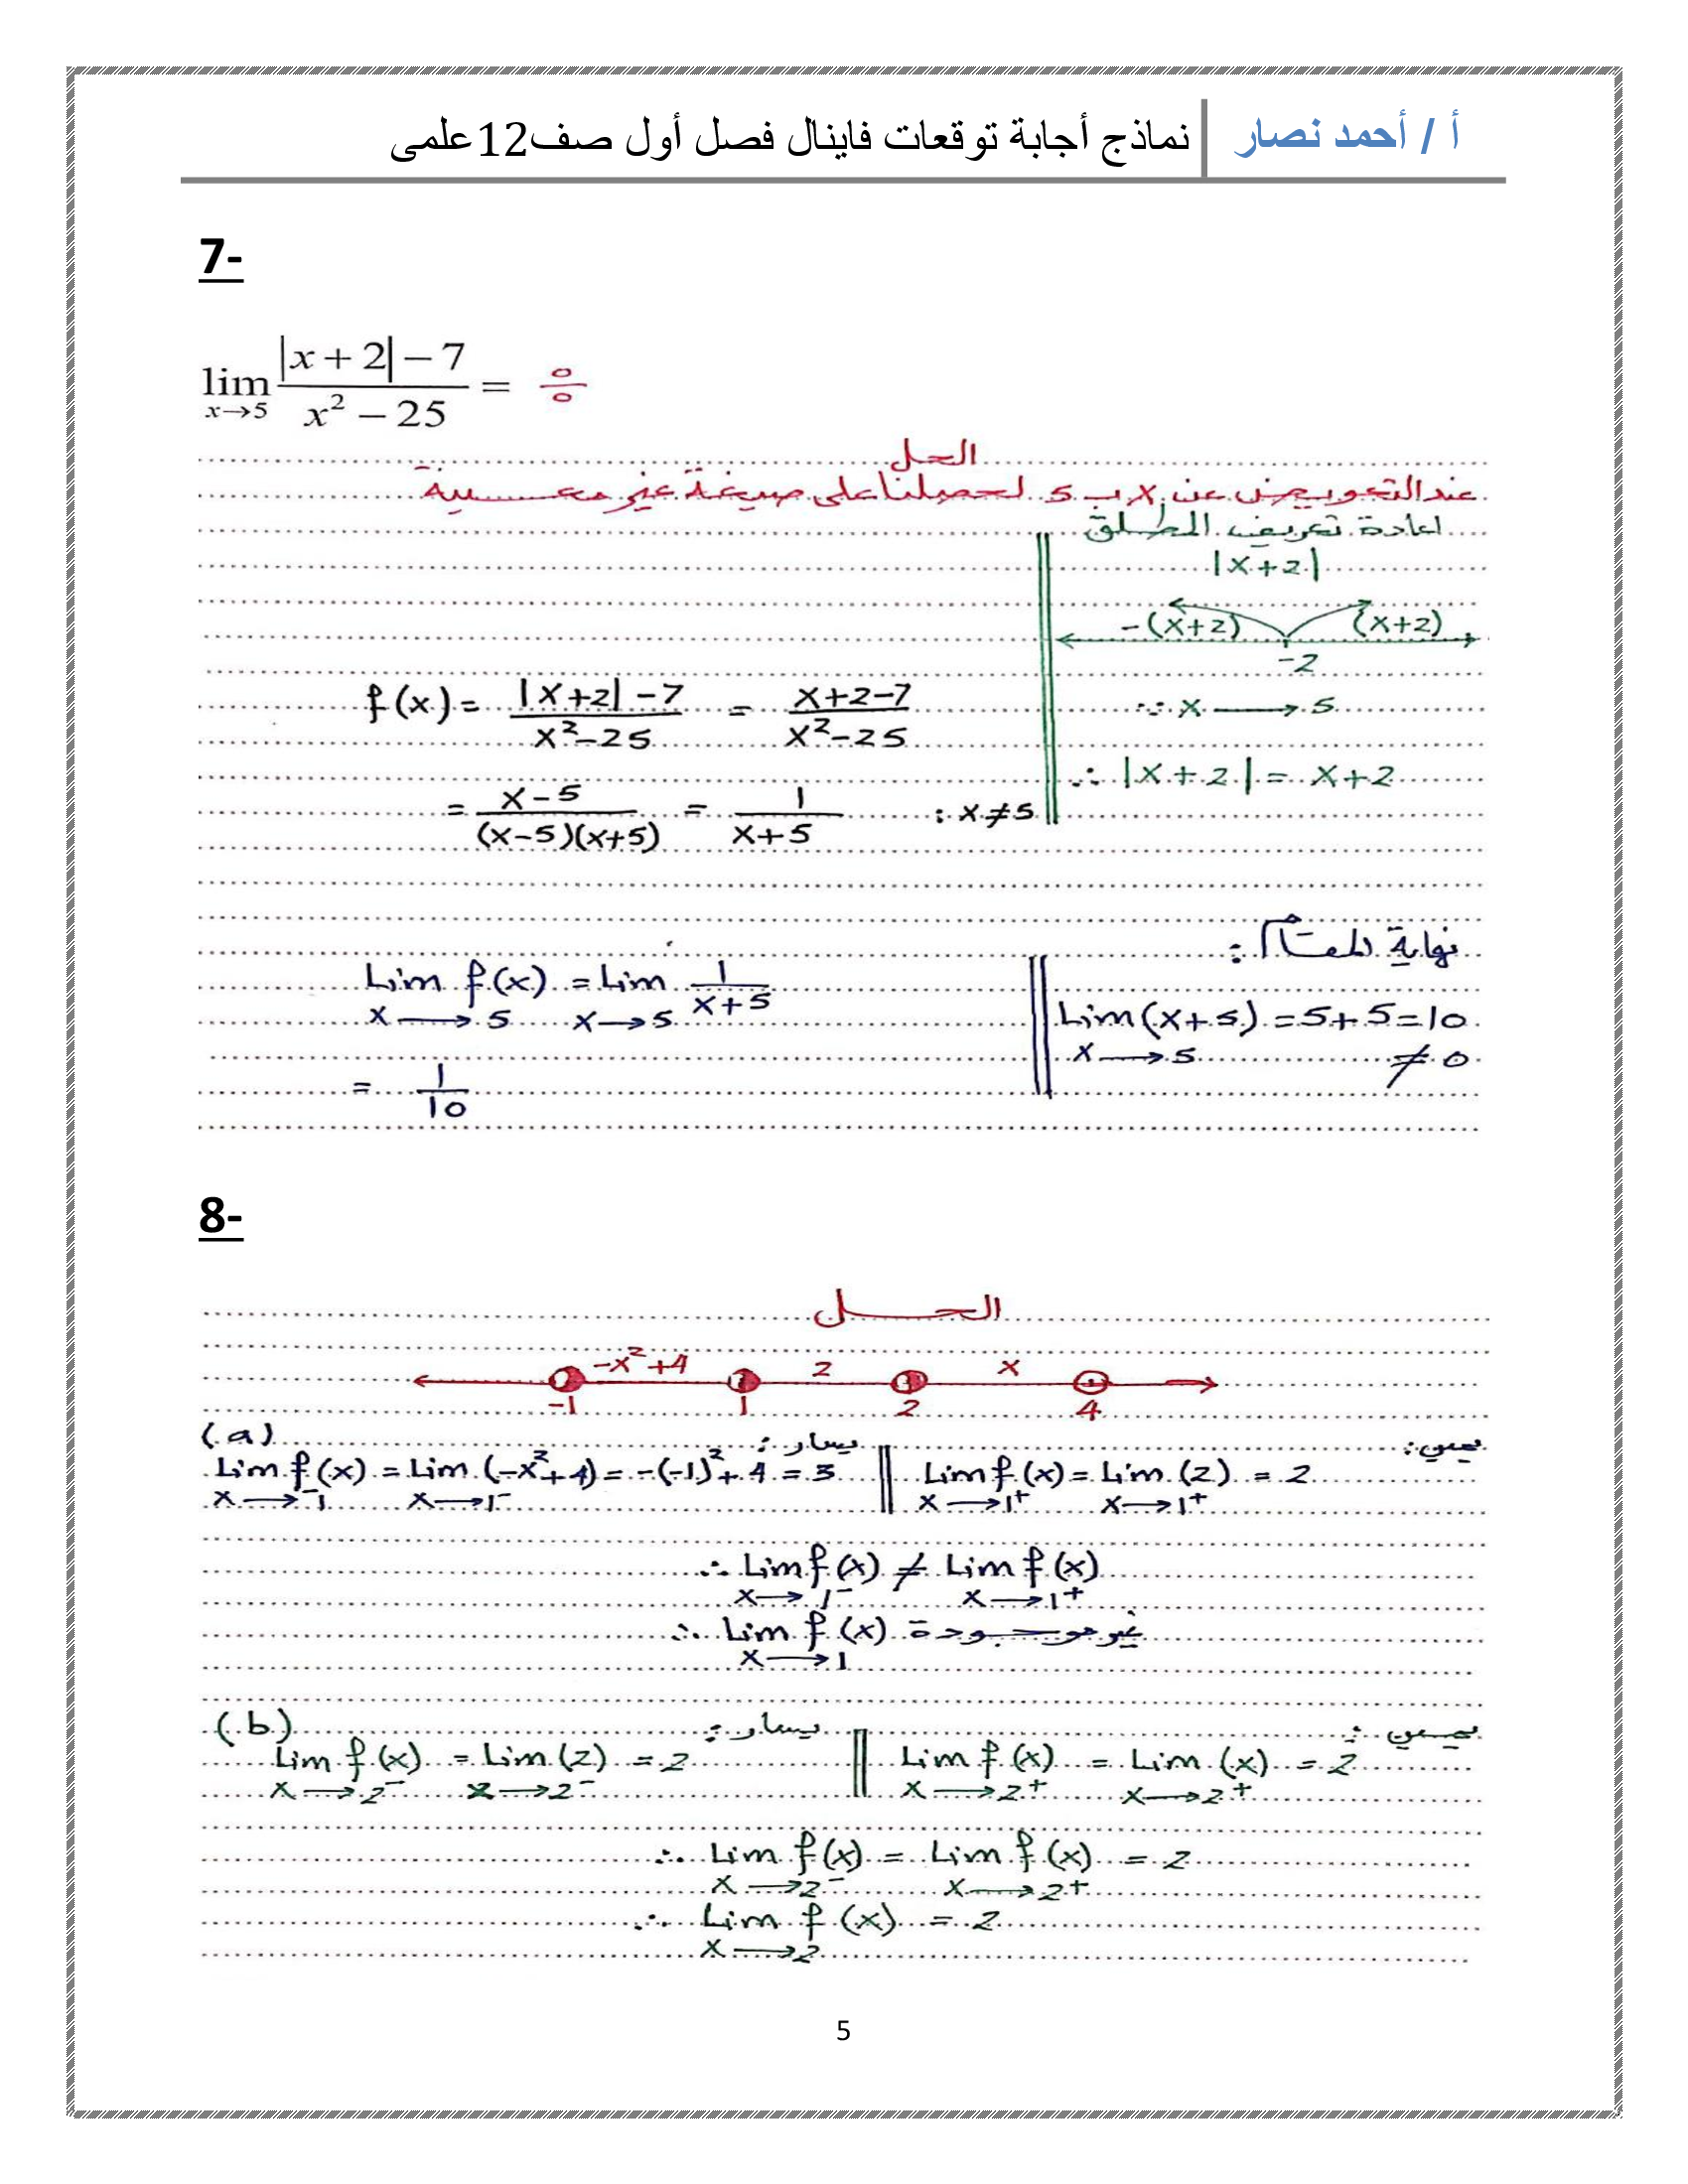 أ / أحمد نصار
نماذج أجابة توقعات فاينال فصل أول صف12علمى
7-
lim x→5 (|x + 2| − 7) / (x² − 25) = 0/0
الحل
عند التعويض عن x ب 5 لحصلنا على صيغة غير معينة
اعادة تعريف المطلق
|x+2|
-(x+2) (x+2)
-2
f(x) = (|x+2| -7) / (x²-25) = (x+2-7) / (x²-25)
∵ x → 5
∴ |x+2| = x+2
= (x-5) / ((x-5)(x+5)) = 1 / (x+5) : x≠5
نهاية المقام :
Lim x→5 f(x) = Lim x→5 1/(x+5)
Lim x→5 (x+5) = 5+5 = 10 ≠ 0
= 1/10
8-
الحل
-x²+4 2 x
-1 1 2 4
(a)
يسار : يمين :
Lim x→1⁻ f(x) = Lim x→1⁻ (-x²+4) = -(-1)²+4 = 3
Lim x→1⁺ f(x) = Lim x→1⁺ (2) = 2
∴ Lim x→1⁻ f(x) ≠ Lim x→1⁺ f(x)
∴ Lim x→1 f(x) غير موجودة
(b)
يسار : يمين :
Lim x→2⁻ f(x) = Lim x→2⁻ (2) = 2
Lim x→2⁺ f(x) = Lim x→2⁺ (x) = 2
∴ Lim x→2⁻ f(x) = Lim x→2⁺ f(x) = 2
∴ Lim x→2 f(x) = 2
5